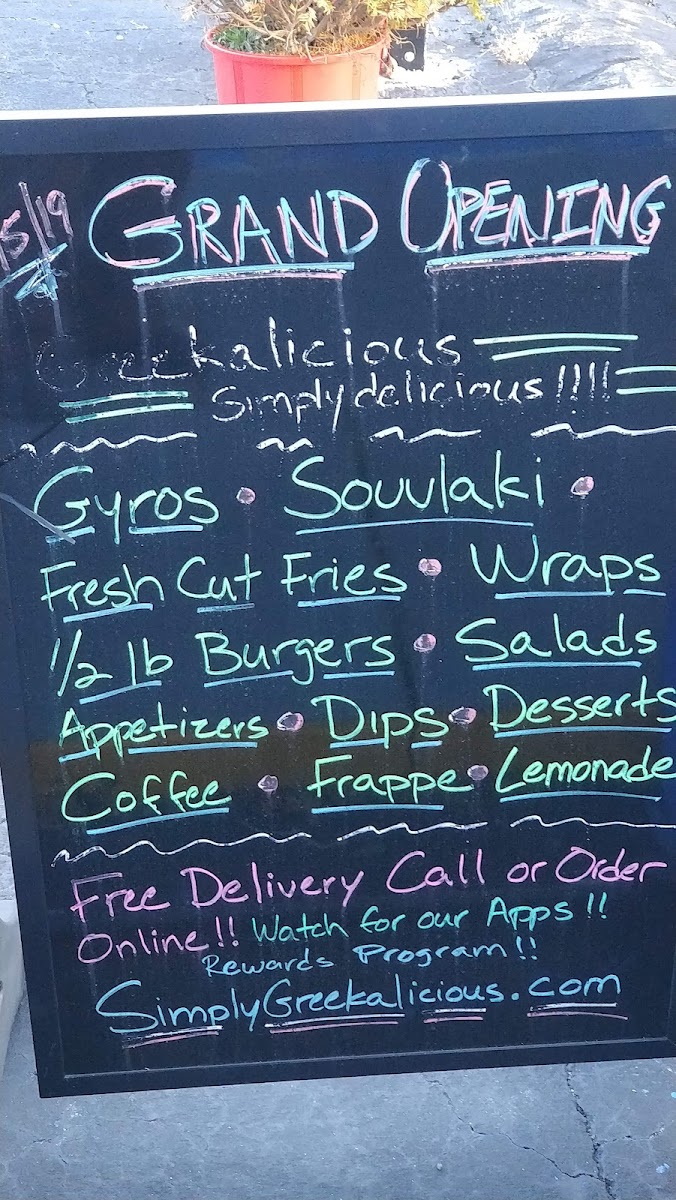 5/19 GRAND OPENING
Greekalicious
Simply delicious!!!!
Gyros • Souvlaki •
Fresh Cut Fries • Wraps
1/2 lb Burgers • Salads
Appetizers • Dips • Desserts
Coffee • Frappe • Lemonade
Free Delivery Call or Order
Online!! Watch for our Apps!!
Rewards Program!!
SimplyGreekalicious.com